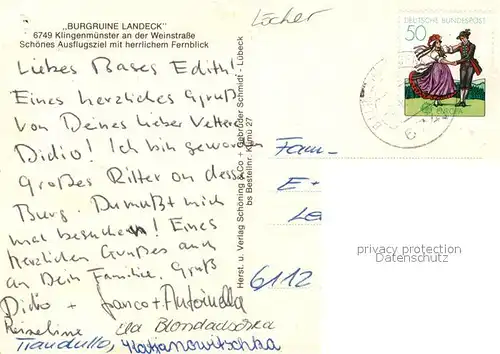 „BURGRUINE LANDECK"
6749 Klingenmünster an der Weinstraße
Schönes Ausflugsziel mit herrlichem Fernblick
Löcher
DEUTSCHE BUNDESPOST
50
EUROPA
Liebes Bases Edith!
Eines herzliches Gruß
von Deines lieber Vetters
Didio! Ich bin geworden
großes Ritter on dessa
Burg. Du mußt mich
mal besuchen! Eines
herzlichen Grußes auch
an Dein Familie. Gruß
Didio + Franco + Antoinella
Herst. u. Verlag Schöning & Co + Gebrüder Schmidt - Lübeck
bs Bestellnr. Klümü 27
Fam-
E
Le
6112
privacy protection
Datenschutz